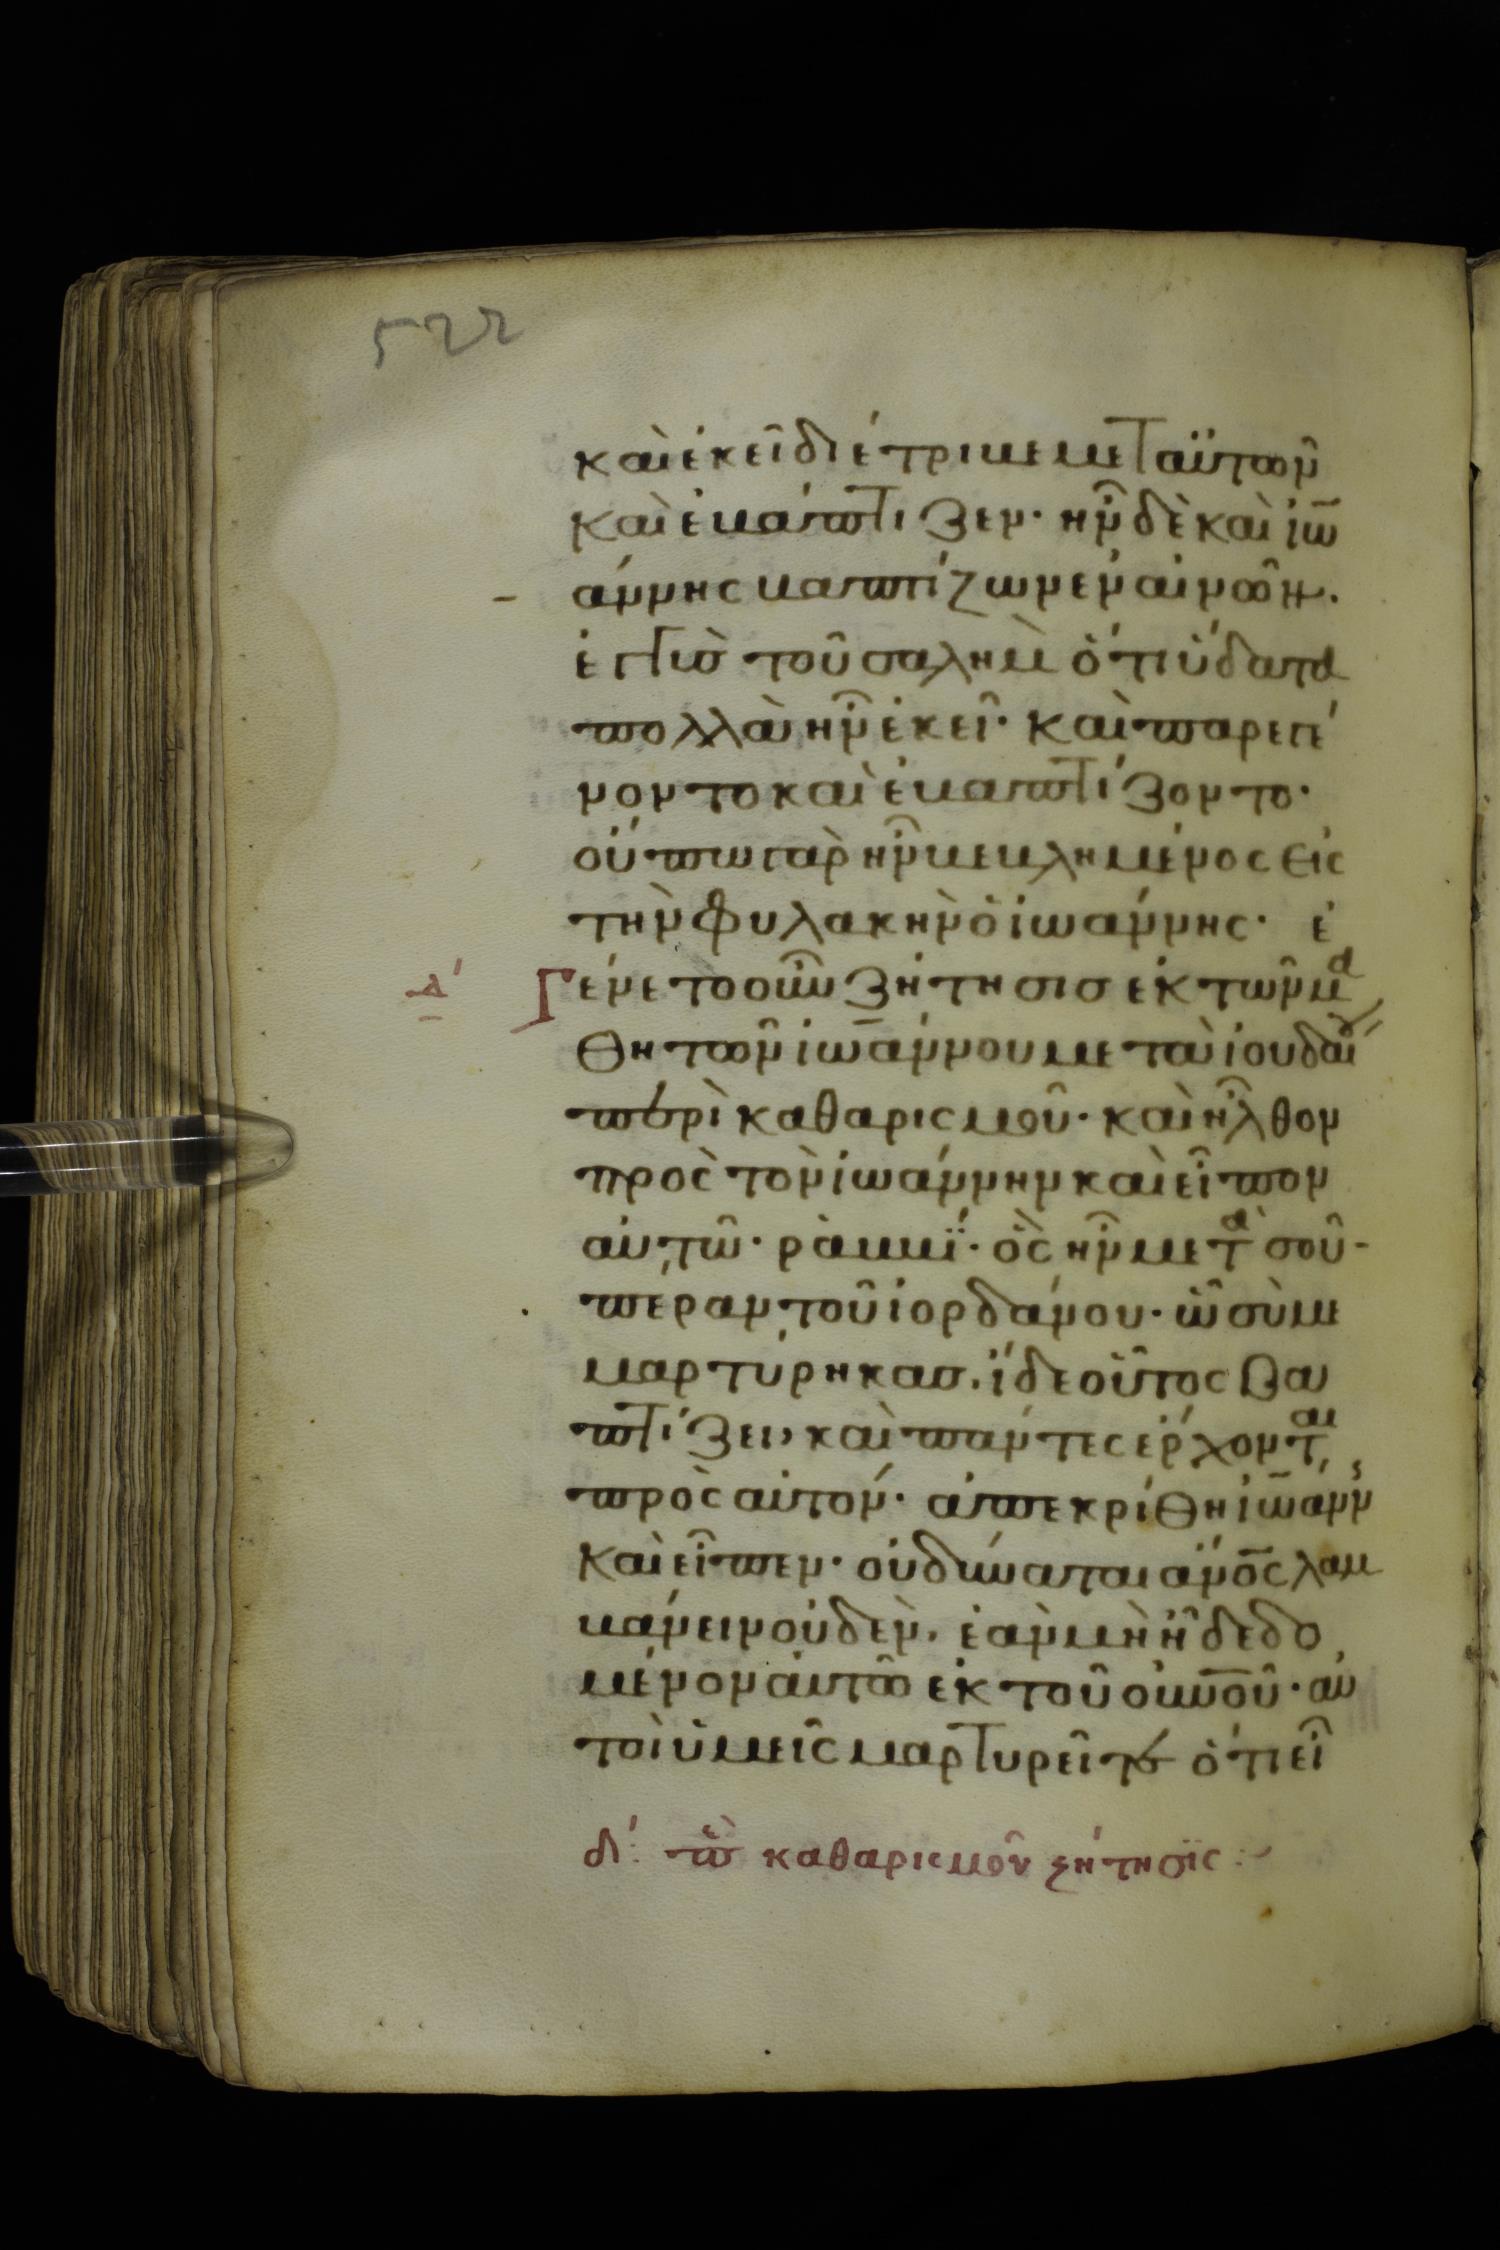 522
καὶ ἐκεῖ διέτριβε μετ αὐτῶν
καὶ ἐβάπτιζεν· ἦν δὲ καὶ ἰω
άννης βαπτίζων ἐν αἰνῶν·
ἐγγὺσ τοῦ σαλὴμ ὅτι ὕδατα
πολλὰ ἦν ἐκεῖ· καὶ παρεγί
νοντο καὶ ἐβαπτίζοντο·
οὔπω γὰρ ἦν βεβλημένος εἰς
τὴν φυλακὴν ὁ ἰωάννης· ἐ
δ´ Γένετο οὖν ζήτησισ ἐκ τῶν μα
θητῶν ἰωάννου μετὰ ἰουδαί
περὶ καθαρισμοῦ· καὶ ἦλθον
πρὸς τὸν ἰωάννην καὶ εἶπον
αὐτῶ· ῥαββΐ· ὃς ἦν μετὰ σοῦ
πέραν τοῦ ἰορδάνου· ὧ σὺ με
μαρτύρηκασ· ἴδε οὗτος βα
πτίζει, καὶ πάντες ἔρχονται
πρὸς αὐτόν· ἀπεκρίθη ἰωάνν
καὶ εἶπεν· οὐ δύναται ἄνος λαμ
βάνειν οὐδὲν· ἐὰν μὴ ἦ δεδο
μένον αὐτῶ ἐκ τοῦ οὐνοῦ· αὐ
τοὶ ὑμεῖς μαρτυρεῖτε ὅτι εἶ
δ´: πε καθαρισμοῦ ζήτησϊς: